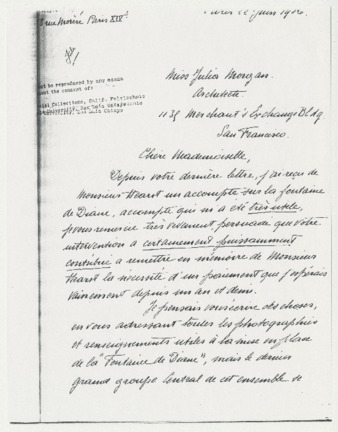 rue Morère Paris XIV
Paris 22 Juin 1926
not be reproduced by any means
the consent of:
Special Collections, Calif. Polytechnic
Miss Julia Morgan.
Architecte.
Merchant's Exchange Bldg
San Francisco.
Chère Mademoiselle,
Depuis votre dernière lettre, j'ai reçu de
Monsieur Hearst un accompte sur la fontaine
de Diane, accompte qui m'a été très utile,
je vous remercie très vivement, persuadé que votre
intervention a certainement puissamment
contribué a remettre en mémoire de Monsieur
Hearst la nécessité d'un paiement que j'espérais
vainement depuis un an et demi.
Je pensais vous écrire des choses,
en vous adressant toutes les photographies
et renseignements utiles à la mise en place
de la "Fontaine de Diane", mais le dernier
grand groupe central de cet ensemble se